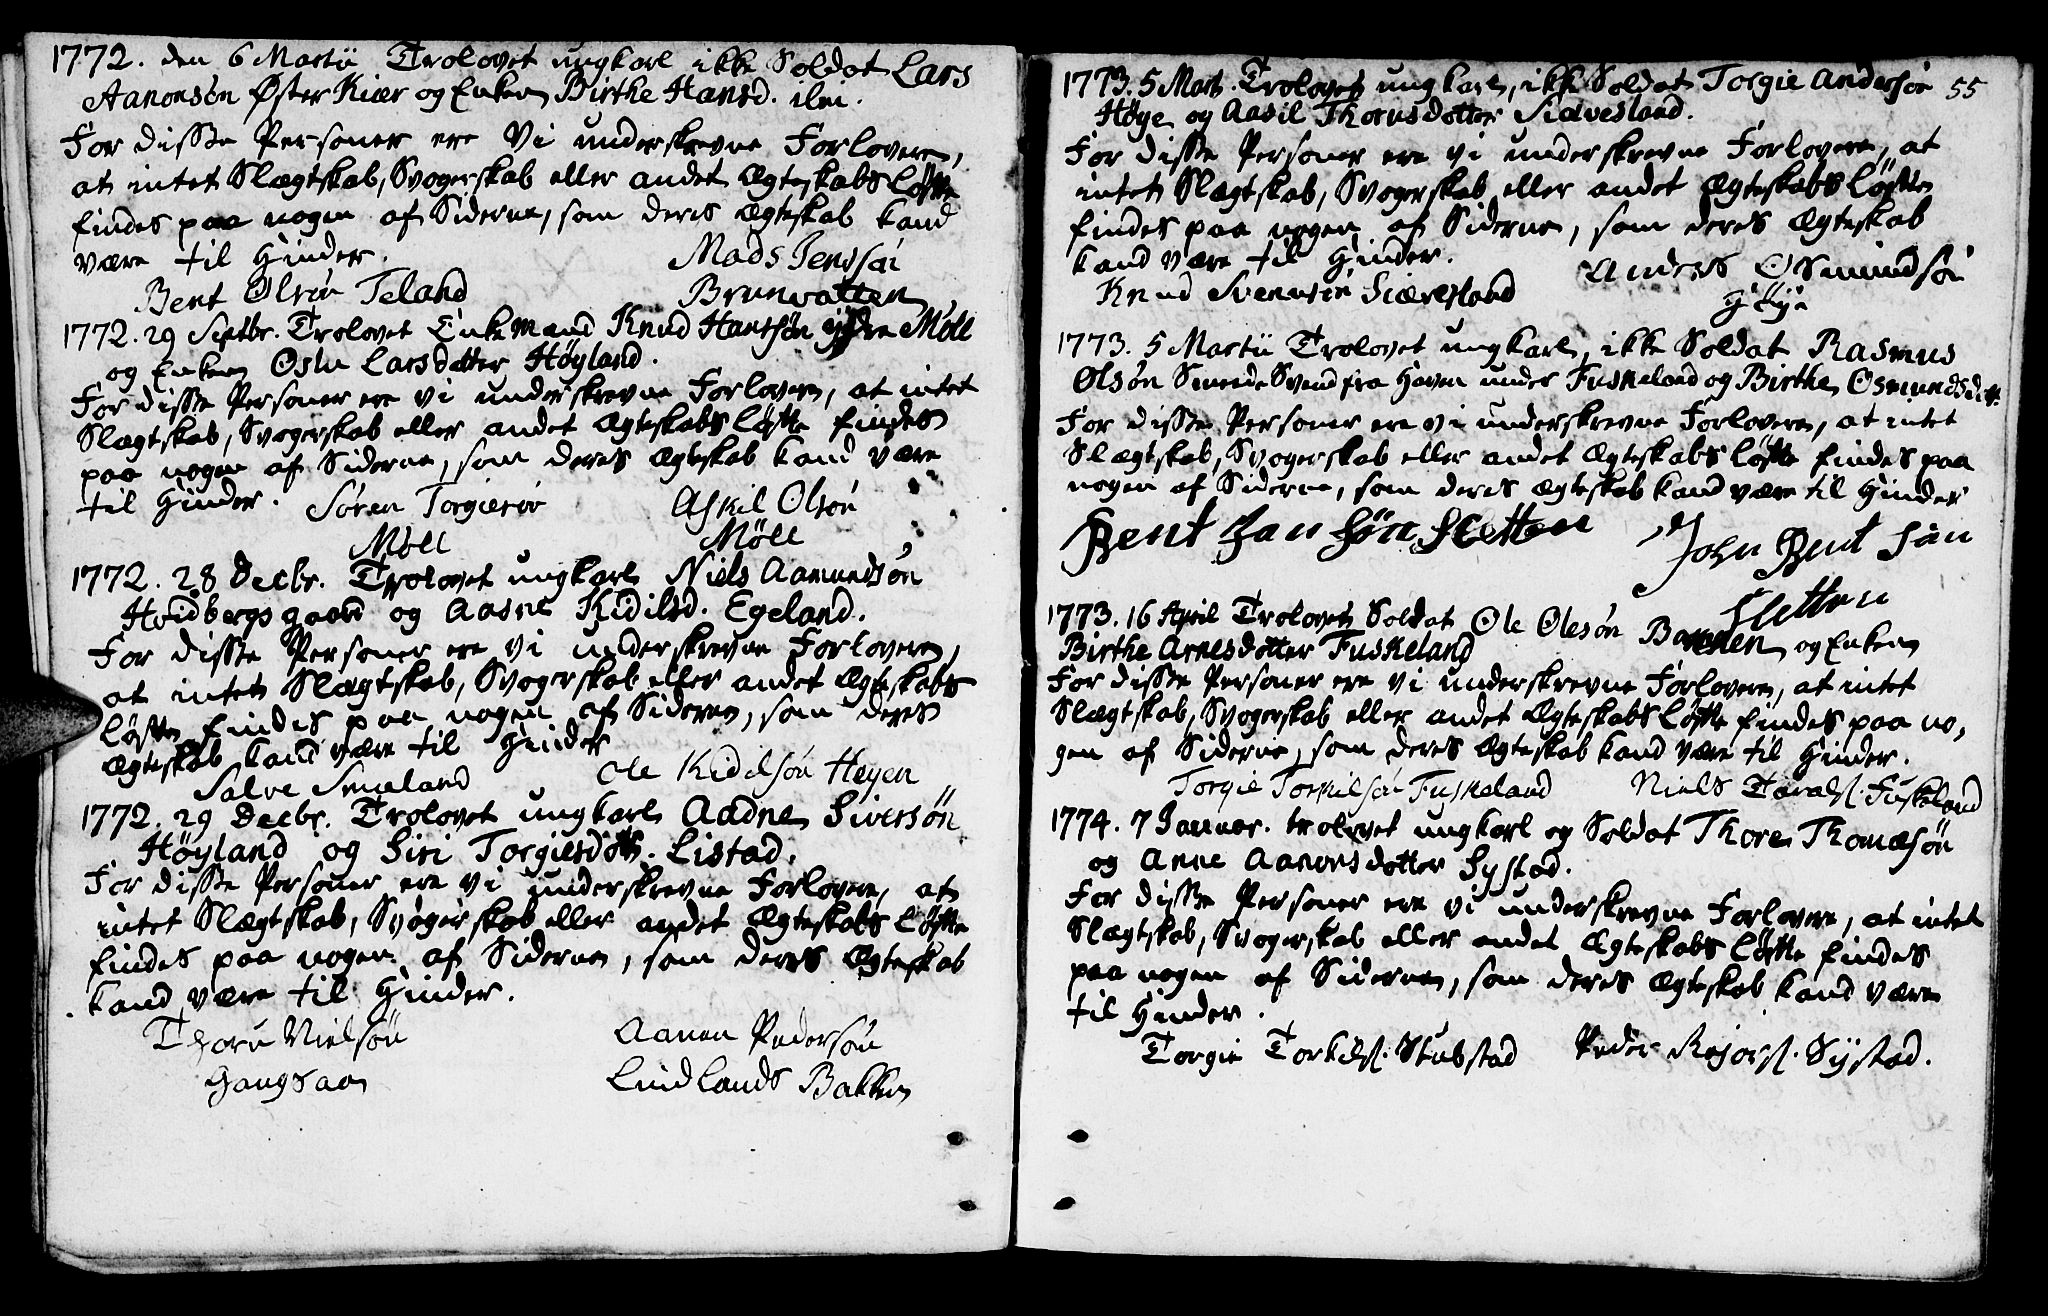 1772. den 6 Martii Trolovet ungkarl ikke Soldat Lars
Aanonsøn Øster Kiær og Enken Birthe Hansd. ibm.
For disse Personer ere Vi underskrevne Forlovere,
at intet Slægtskab, Svogerskab eller andet Ægteskabs løfte
findes paa nogen af Siderne, som deres Ægteskab kand
være til Hinder.
Mads Jenssøn
Bent Olsøn Teland
Brunvatten
1772. 29 Septbr. Trolovet Enkemand Knud Hansøn øvre Møll
og Enken Oslu Larsdatter Høyland.
For disse Personer ere vi underskrevne Forlovere, at intet
Slægtskab, Svogerskab eller andet Ægteskabs løfte findes
paa nogen af Siderne, som deres Ægteskab kand være
til Hinder. Søren Torgiersøn Askil Olsøn
Møll Møll
1772. 28 Decbr. Trolovet ungkarl Niels Aamundsøn
Hvidbergsgaard og Aasne Kidilsd. Egeland.
For disse Personer ere vi underskrevne Forlovere,
at intet Slægtskab, Svogerskab eller andet Ægteskabs
løfte findes paa nogen af Siderne, som deres
Ægteskab kand være til Hinder
Salve Smeland Ole Kidilsøn Heyen
1772. 29 Decbr. Trolovet ungkarl Aadne Siversøn
Høyland og Siri Torgiersdotts. Listad.
For disse Personer ere vi underskrevne Forlovere, at
intet Slægtskab, Svogerskab eller andet Ægteskabs løfte
findes paa nogen af Siderne, som deres Ægteskab
kand være til Hinder.
Thore Nielsøn Aanen Pedersøn
Haugaas Lindlands Bakken
55
1773. 5 Mart. Trolovet ungkarl, ikke Soldat Torgie Andersøn
Høye og Aasil Thorsdotter Siævesland.
For disse Personer ere vi underskrevne Forlovere, at
intet Slægtskab, Svogerskab eller andet Ægteskabs løfte
findes paa nogen af Siderne, som deres Ægteskab
kand være til Hinder. Anders Osmundsøn
Knud Svennsøn Siævesland Høye
1773. 5 Martii Trolovet ungkarl, ikke Soldat Rasmus
Olsøn Smede Svend fra Haven under Fuskeland og Birthe Osmundsdatt.
For disse Personer ere vi underskrevne Forlovere, at intet
Slægtskab, Svogerskab eller andet Ægteskabs løfte findes paa
nogen af Siderne, som deres Ægteskab kand være til Hinder
Bent Jansøn Sletten John Bentsøn
Sletten
1773. 16 April Trolovet Soldat Ole Olesøn Barenen og Enken
Birthe Arnesdotter Fuskeland
For disse Personer ere vi underskrevne Forlovere, at intet
Slægtskab, Svogerskab eller andet Ægteskabs løfte findes paa no,
gen af Siderne, som deres Ægteskab kand være til Hinder.
Torgie Torkilsøn Fuskeland Niels Taralss. Fuskeland
1774. 7 Januar. trolovet ungkarl og Soldat Thore Thomæsøn
og Anne Aanensdotter Systad.
For disse Personer ere vi underskrevne Forlovere, at intet
Slægtskab, Svogerskab eller andet Ægteskabs løfte findes
paa nogen af Siderne, som deres Ægteskab kand være
til Hinder.
Torgie Torkilss. Stubstad Peder Rejerss. Systad.